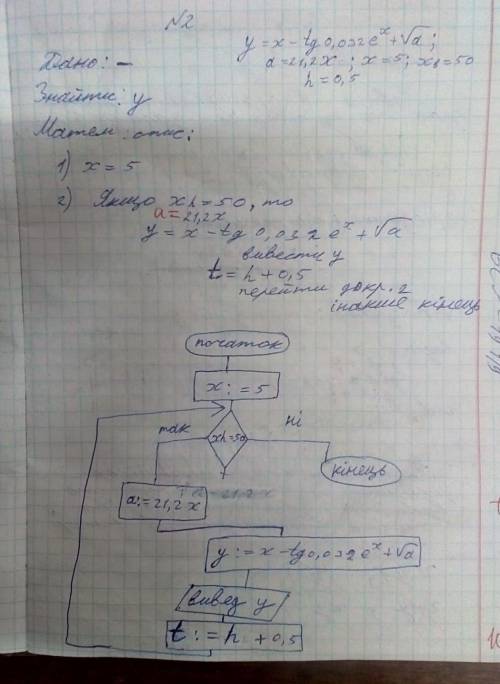 №2
y = x - tg 0,032 e^x + √a ;
Дано: —
a = 21,2x ; x = 5 ; xh = 50
h = 0,5
Знайти: y
Матем. опис:
1) x = 5
2) Якщо xh = 50, то
a = 21,2x
y = x - tg 0,032 e^x + √a
вивести y
t = h + 0,5
перейти до кр. 2
інакше кінець
початок
x := 5
так
xh=50
ні
кінець
a := 21,2 x
y := x - tg 0,032 e^x + √a
вивед y
t := h + 0,5